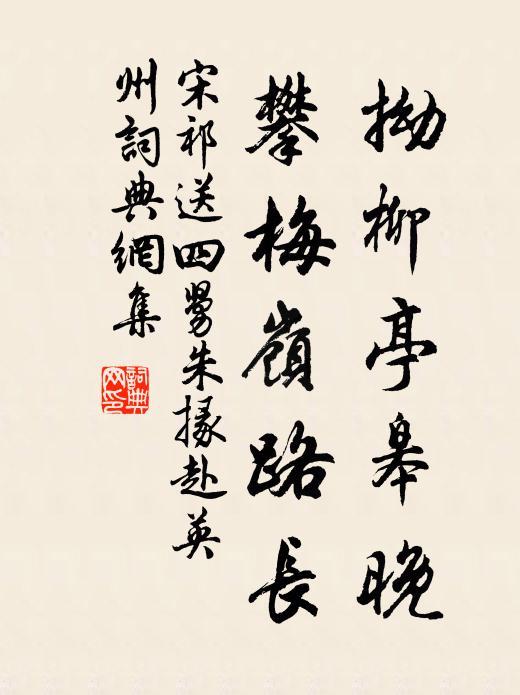 拗柳亭皋晚
攀梅嶺路長
宋祁送四舅朱掾赴英
州詞典網集
詞典
网印